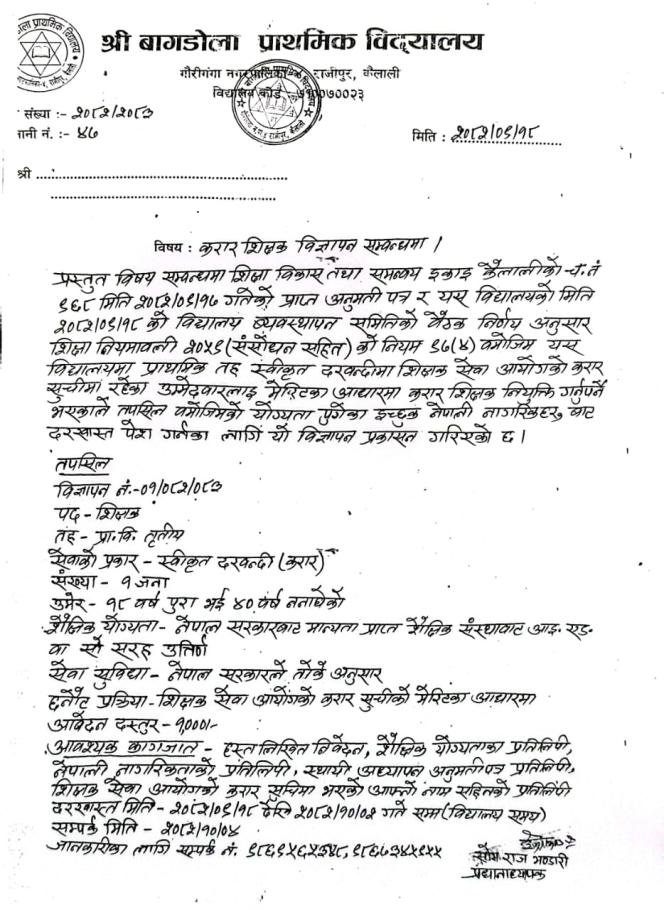 श्री बागडोला प्राथमिक विद्यालय
गौरीगंगा नगरपालिका राजीपुर, कैलाली
विद्यालय कोड ७१००७००२३
संख्या :- २०८२/२०८३
नं. :- ४७
मिति : २०८२/०९/१८
श्री
विषय : करार शिक्षक विज्ञापन सम्बन्धमा ।
प्रस्तुत विषय सम्बन्धमा शिक्षा विकास तथा समन्वय इकाइ कैलालीको च.नं
९६८ मिति २०८२/०९/१७ गतेको प्राप्त अनुमती पत्र र यस विद्यालयको मिति
२०८२/०९/१८ को विद्यालय व्यवस्थापन समितिको बैठक निर्णय अनुसार
शिक्षा नियमावली २०५९ (संसोधन सहित) को नियम ९७(४) बमोजिम यस
विद्यालयमा प्राथमिक तह स्वीकृत दरवन्दीमा शिक्षक सेवा आयोगको करार
सुचीमा रहेका उमेदवारलाइ मेरिटका आधारमा करार शिक्षक नियुक्ति गर्नुपर्ने
भएकाले तपसिल बमोजिमको योग्यता पुगेका इच्छुक नेपाली नागरिकहरु बाट
दरखास्त पेश गर्नका लागि यो विज्ञापन प्रकासन गरिएको छ ।
तपसिल
विज्ञापन नं.-०१/०८२/०८३
पद - शिक्षक
तह - प्रा.वि. तृतीय
सेवाको प्रकार - स्वीकृत दरवन्दी (करार)
संख्या - १ जना
उमेर - १८ वर्ष पुरा भई ४० वर्ष ननाघेको
शैक्षिक योग्यता - नेपाल सरकारबाट मान्यता प्राप्त शैक्षिक संस्थाबाट आइ. एड.
वा सो सरह उत्तिर्ण
सेवा सुविधा - नेपाल सरकारले तोके अनुसार
छनौट प्रक्रिया - शिक्षक सेवा आयोगको करार सुचीको मेरिटका आधारमा
आवेदन दस्तुर - १०००/-
आवश्यक कागजात - हस्त लिखित निवेदन, शैक्षिक योग्यताका प्रतिलिपी,
नेपाली नागरिकताको प्रतिलिपी, स्थायी अध्यापन अनुमतीपत्र प्रतिलिपी,
शिक्षक सेवा आयोगको करार सुचिमा भएको आफ्नो नाम सहितको प्रतिलिपी
दरखास्त मिति - २०८२/०९/१८ देखि २०८२/१०/०२ गते सम्म (विद्यालय समय)
सम्पर्क मिति - २०८२/१०/०४
जानकारीका लागि सम्पर्क नं.
राज भण्डारी
प्रधानाध्यापक